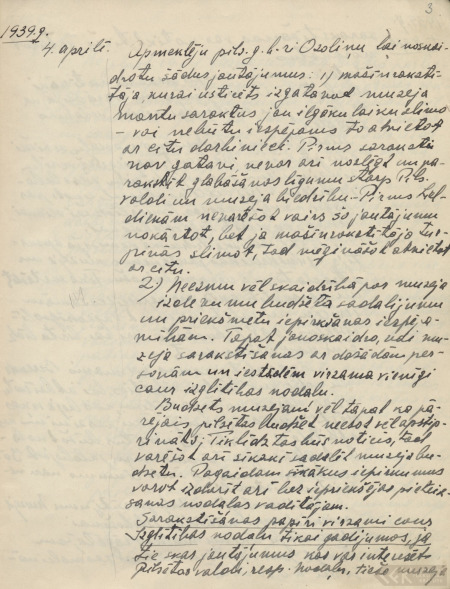 3.
1939.g.
4. aprilī. Apmeklēju pils. g. k-ri Ozoliņu lai noskai-
drotu šādus jautājumus: 1) mašinrakstī-
tāja, kurai uzticēts izgatavot muzeja
mantu sarakstus jau ilgāku laiku slimo
– vai nebūtu iespējams to atvietot
ar citu darbinieci. Pirms saraksti
nav gatavi, nevar arī noslēgt un pa-
rakstīt glabāšanas līgumu starp Pils.
valdi un muzeja biedrību. Pirms Lel-
dienām nevarēšot vairs šo jautājumu
nokārtot, bet ja mašinrakstītāja tur-
pinās slimot, tad mēģināšot atvietot
ar citu.
2) Neesmu vēl skaidrībā par muzeja
izdevumu budžeta sadalījumu
un priekšmetu iepirkšanas iespēja-
mībām. Tāpat jānoskaidro, vai mu-
zeja sarakstīšanās ar dažādām per-
sonām un iestādēm virzama vienīgi
caur izglītības nodaļu.
Budžets muzejam vēl tāpat kā pā-
rējais pilsētas budžets neesot vēl apstip-
rināts; tiklīdz tas būs noticis, tad
varēšot arī sīkāki sadalīt muzeja bu-
džetu. Pagaidām sīkākus iepirkumus
varot izdarīt arī bez iepriekšējas pieteik-
šanas nodaļas vadītājam.
Sarakstīšanas papīri virzami caur
Izglītības nodaļu tikai gadījumos, ja
tie skar jautājumus kas var interesēt
pilsētas valdi, resp. nodaļu, tieši muzeja